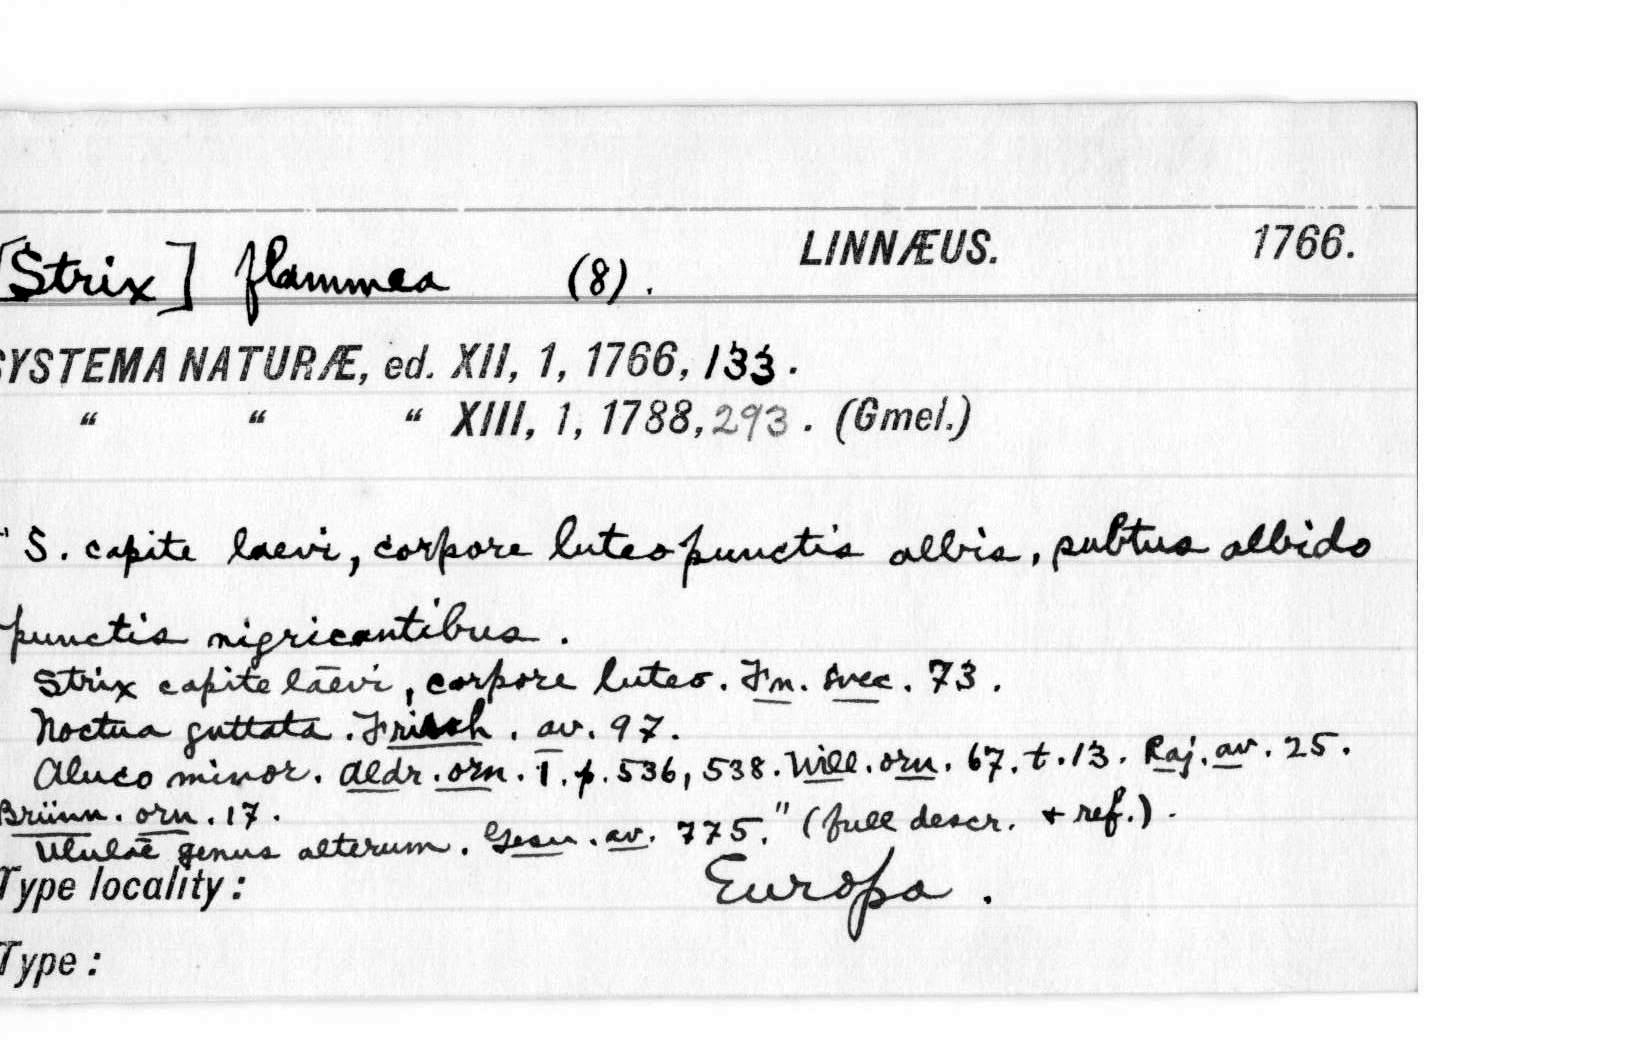 [Strix] flammea (8). LINNÆUS. 1766.
SYSTEMA NATURÆ, ed. XII, 1, 1766, 133.
“ “ “ XIII, 1, 1788, 293. (Gmel.)
"S. capite laevi, corpore luteo punctis albis, subtus albido
punctis nigricantibus.
Strix capite laēvi, corpore luteo. Fn. svec. 73.
Noctua guttata. Frisch. av. 97.
Aluco minor. Aldr. orn. 1. p. 536, 538. Will. orn. 67. t. 13. Raj. av. 25.
Brünn. orn. 17.
Ululae genus alterum. Gesn. av. 775." (full descr. + ref.).
Type locality: Europa.
Type: